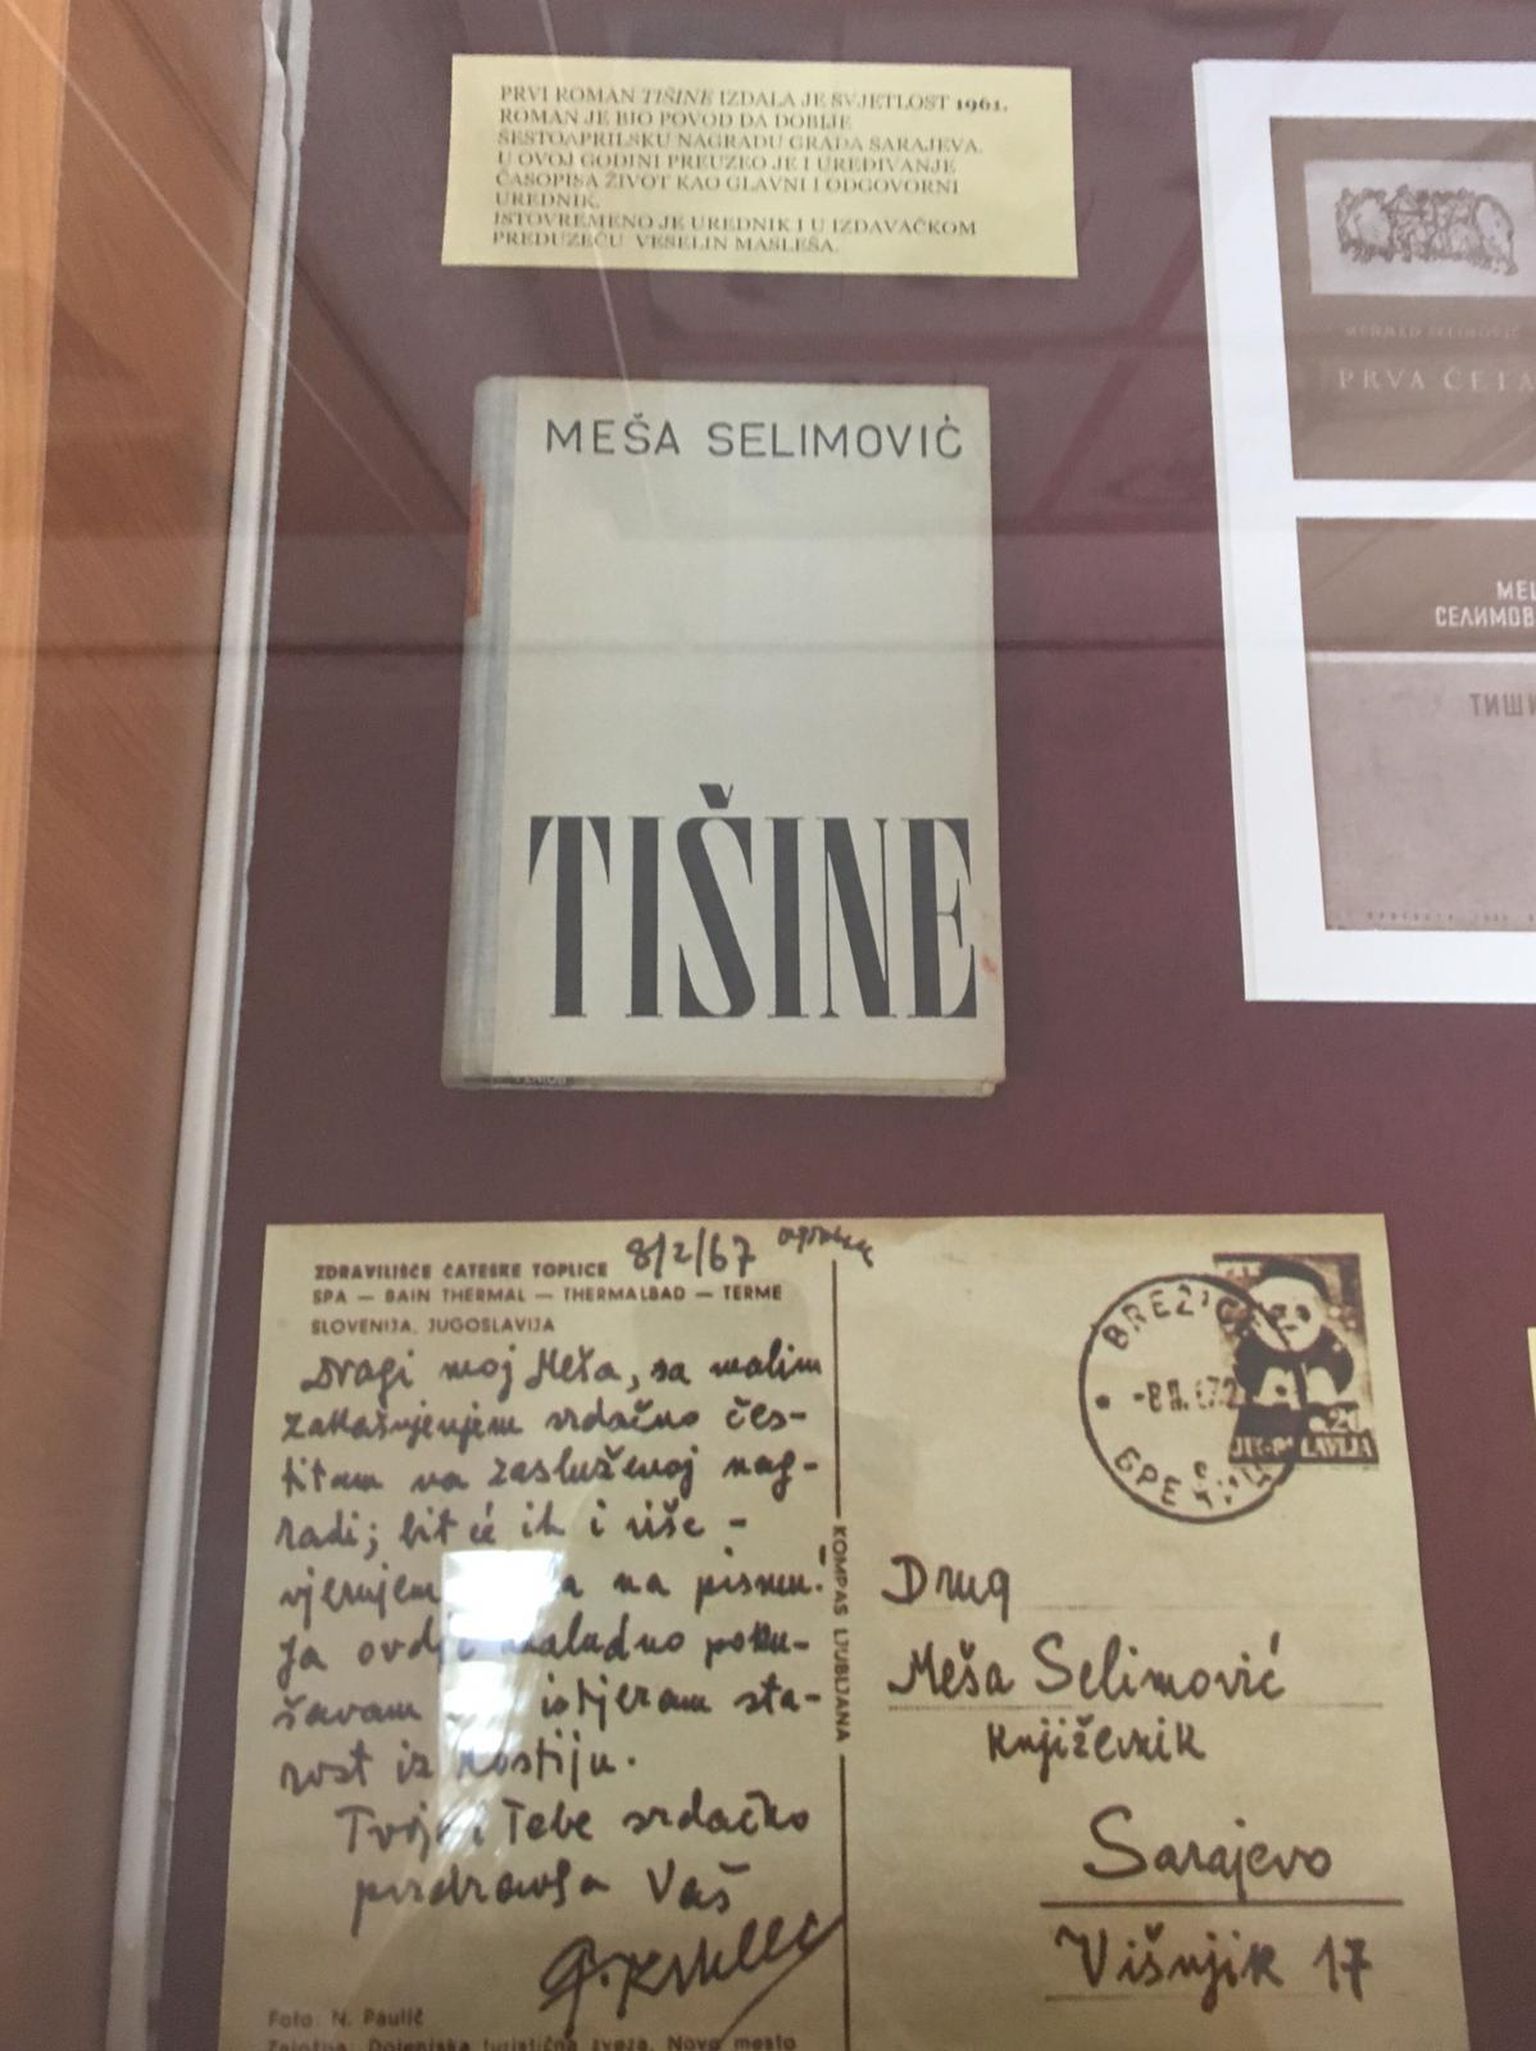 PRVI ROMAN TIŠINE IZDALA JE SVJETLOST 1961.
ROMAN JE BIO POVOD DA DOBIJE
ŠESTOAPRILSKU NAGRADU GRADA SARAJEVA.
U OVOJ GODINI PREUZEO JE I UREĐIVANJE
ČASOPISA ŽIVOT KAO GLAVNI I ODGOVORNI
UREDNIK.
ISTOVREMENO JE UREDNIK I U IZDAVAČKOM
PREDUZEĆU VESELIN MASLEŠA.
MEŠA SELIMOVIĆ
TIŠINE
PRVA ČETA
СЕЛИМОВ
ТИШИ
ZDRAVILIŠČE ČATEŠKE TOPLICE 8/2/67
SPA — BAIN THERMAL — THERMALBAD — TERME
SLOVENIJA, JUGOSLAVIJA
Dragi moj Meša, sa malim
zakašnjenjem srdačno čes-
titam na zasluženoj nag-
radi; bit će ih i više -
vjerujem na pismu.
Ja ovdje uzaludno poku-
šavam istjeram sta-
rost iz kostiju.
Tvoje i Tebe srdačno
pozdravlja Vaš
Foto: N. Paulič
Založba: Dolenjska turistična zveza, Novo mesto
KOMPAS LJUBLJANA
BREŽICE
JUGOSLAVIJA
Drug
Meša Selimović
književnik
Sarajevo
Višnjik 17